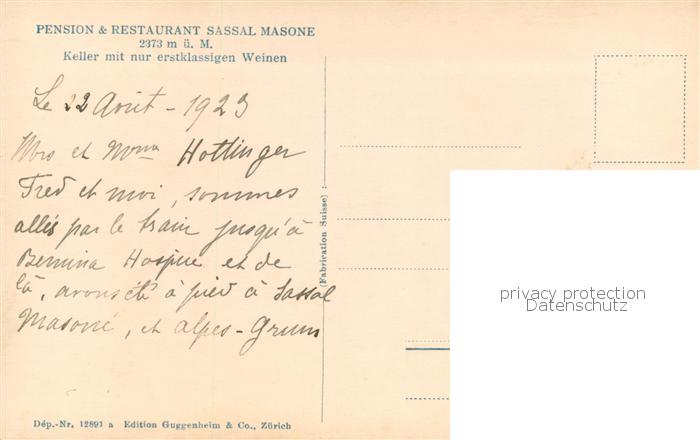 PENSION & RESTAURANT SASSAL MASONE
2373 m ü. M.
Keller mit nur erstklassigen Weinen
Le 22 Août - 1923
Mrs et Hottinger
Fred et moi, sommes
allés par le train jusqu'à
Bernina Hospice et de
là, avons été à pied à Sassal
Masoné, et alpes-Grum
(Fabrication Suisse)
privacy protection
Datenschutz
Dép.-Nr. 12891 a Edition Guggenheim & Co., Zürich